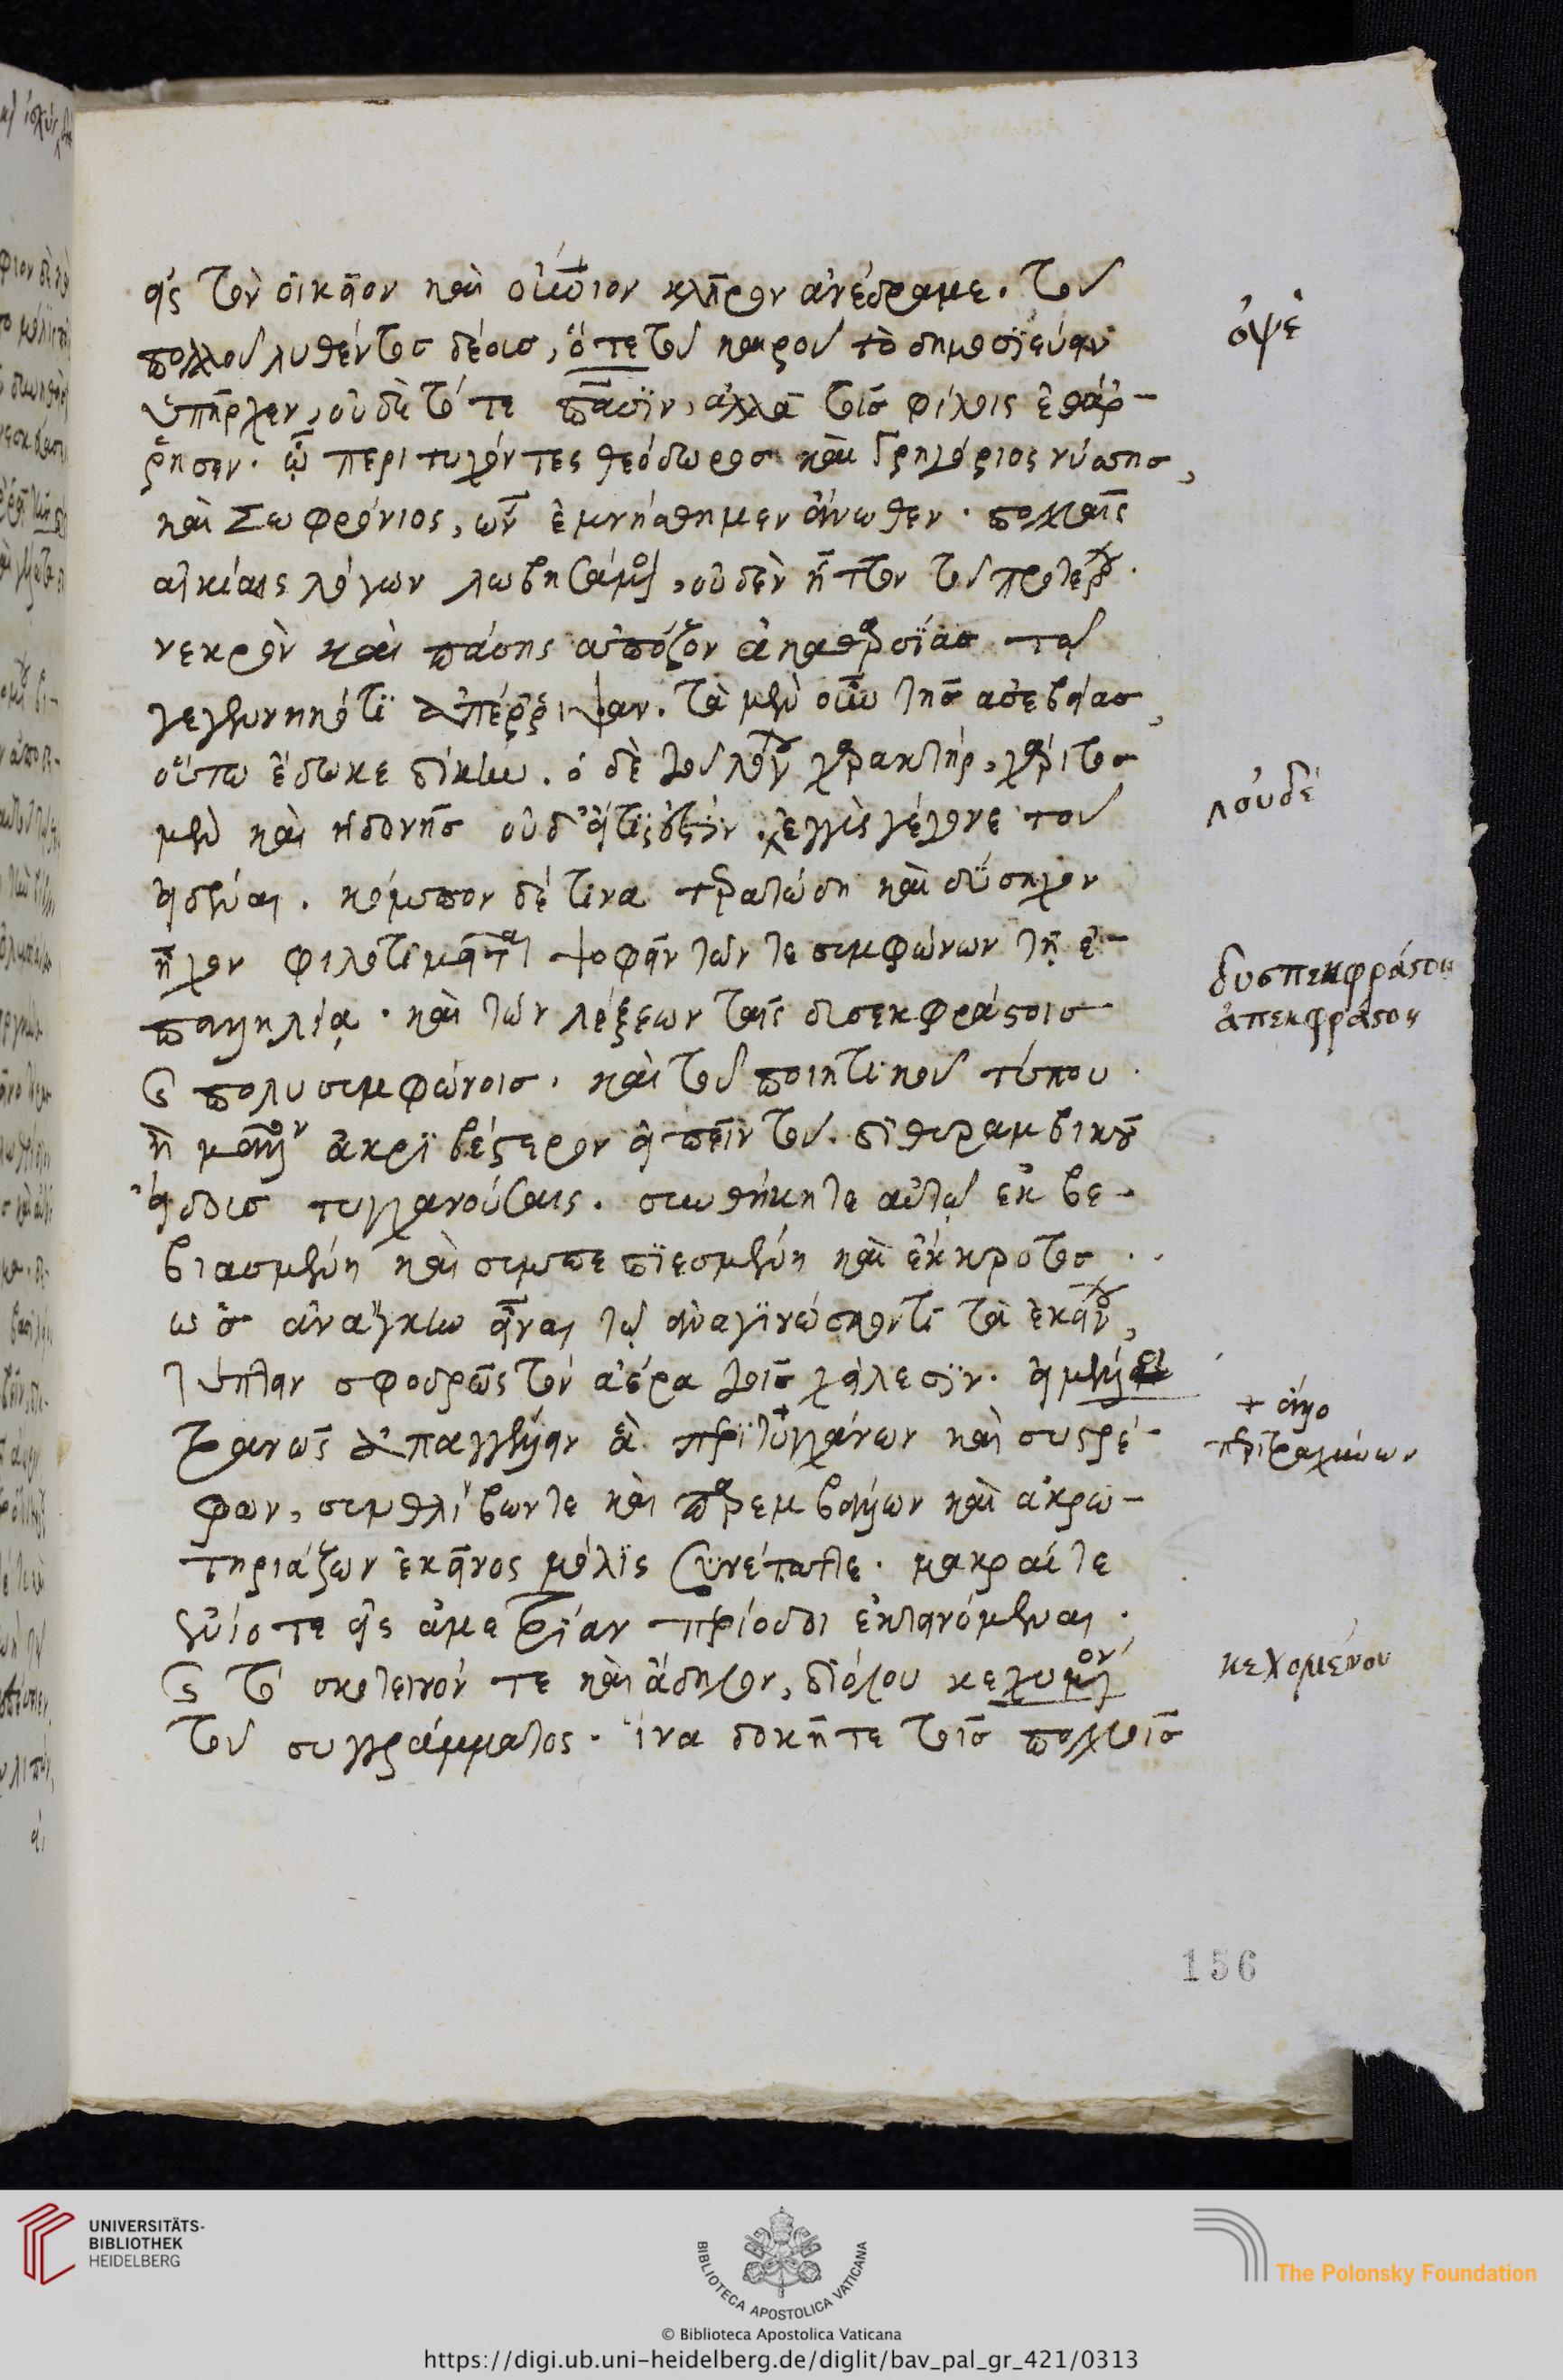 εἰς τὸν οἰκεῖον καὶ αἰώνιον κλῆρον ἀνέδραμε. τοῦ
πολλοῦ λυθέντος δέους, ὅτε τοῦ καιροῦ τὸ δημοσιεύειν
ὑπῆρχεν, οὐδὲ τότε πᾶσιν, ἀλλὰ τοῖς φίλοις ἐθάρ-
ρησεν. ᾧ περιτυχόντες θεόδωρος καὶ Γρηγόριος νύσης,
καὶ Σωφρόνιος, ὧν ἐμνήσθημεν ἄνωθεν. πολλαῖς
αἰκίαις λόγων λωβησάμενοι, οὐδὲν ἧττον τοῦ προτέρου.
νεκρὸν καὶ πάσης ἀπόζον ἀκαθαρσίας τῷ
γεγεννηκότι ἀπέρριψαν. τὰ μὲν οὖν τῆς ἀσεβείας,
οὕτω ἔδωκε δίκην. ὁ δὲ τοῦ λόγου χαρακτήρ, χάριτος
μὲν καὶ ἡδονῆς οὐδ' ἐγγὺς γέγονε τοῦ
εἰδέναι. κόμπον δέ τινα τερατώδη καὶ δύσηχον
ἦχον φιλοτιμεῖται ψοφεῖν τῶν τε συμφώνων τῇ ἐ-
παλληλίᾳ. καὶ τῶν λέξεων ταῖς δυσεκφράστοις
καὶ πολυσυμφώνοις. καὶ τοῦ ποιητικοῦ τύπου.
ἢ μᾶλλον ἀκριβέστερον εἰπεῖν τοῦ. διθυραμβικοῦ
εἴδους τυγχανούσαις. συνθήκη τε αὐτῷ ἐκβε-
βιασμένη καὶ συμπεπιεσμένη καὶ ἔκκροτος.
ὡς ἀνάγκην εἶναι τῷ ἀναγινώσκοντι τὰ ἐκείνου,
τύπτειν σφοδρῶς τὸν ἀέρα τοῖς χείλεσιν. εἰ μέλλοι
τρανῶς ἀπαγγέλλειν ἃ περιτυγχάνων καὶ συστρέ-
φων, συνθλίβων τε καὶ παρεμβάλλων καὶ ἀκρω-
τηριάζων ἐκεῖνος μόλις συνέταττε. μακραί τε
ἐνίοτε εἰς ἀμετρίαν περίοδοι ἐκτεινόμεναι.
καὶ τό σκοτεινόν τε καὶ ἄδηλον, διόλου κεχυμένον
τοῦ συγγράμματος. ἵνα δοκῇ τε τοῖς πολλοῖς
ὀψὲ
λουδέ
δυσπεκφράστου
ἀπεκφράστου
κεχομένου
156
UNIVERSITÄTS-
BIBLIOTHEK
HEIDELBERG
BIBLIOTECA APOSTOLICA VATICANA
The Polonsky Foundation
© Biblioteca Apostolica Vaticana
https://digi.ub.uni-heidelberg.de/diglit/bav_pal_gr_421/0313